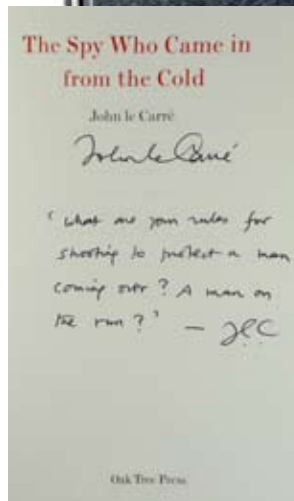 The Spy Who Came in
from the Cold
John le Carré
John le Carré
‘ what are your rules for
shooting to protect a man
coming over ? A man on
the run ? ’ — JlC
Oak Tree Press